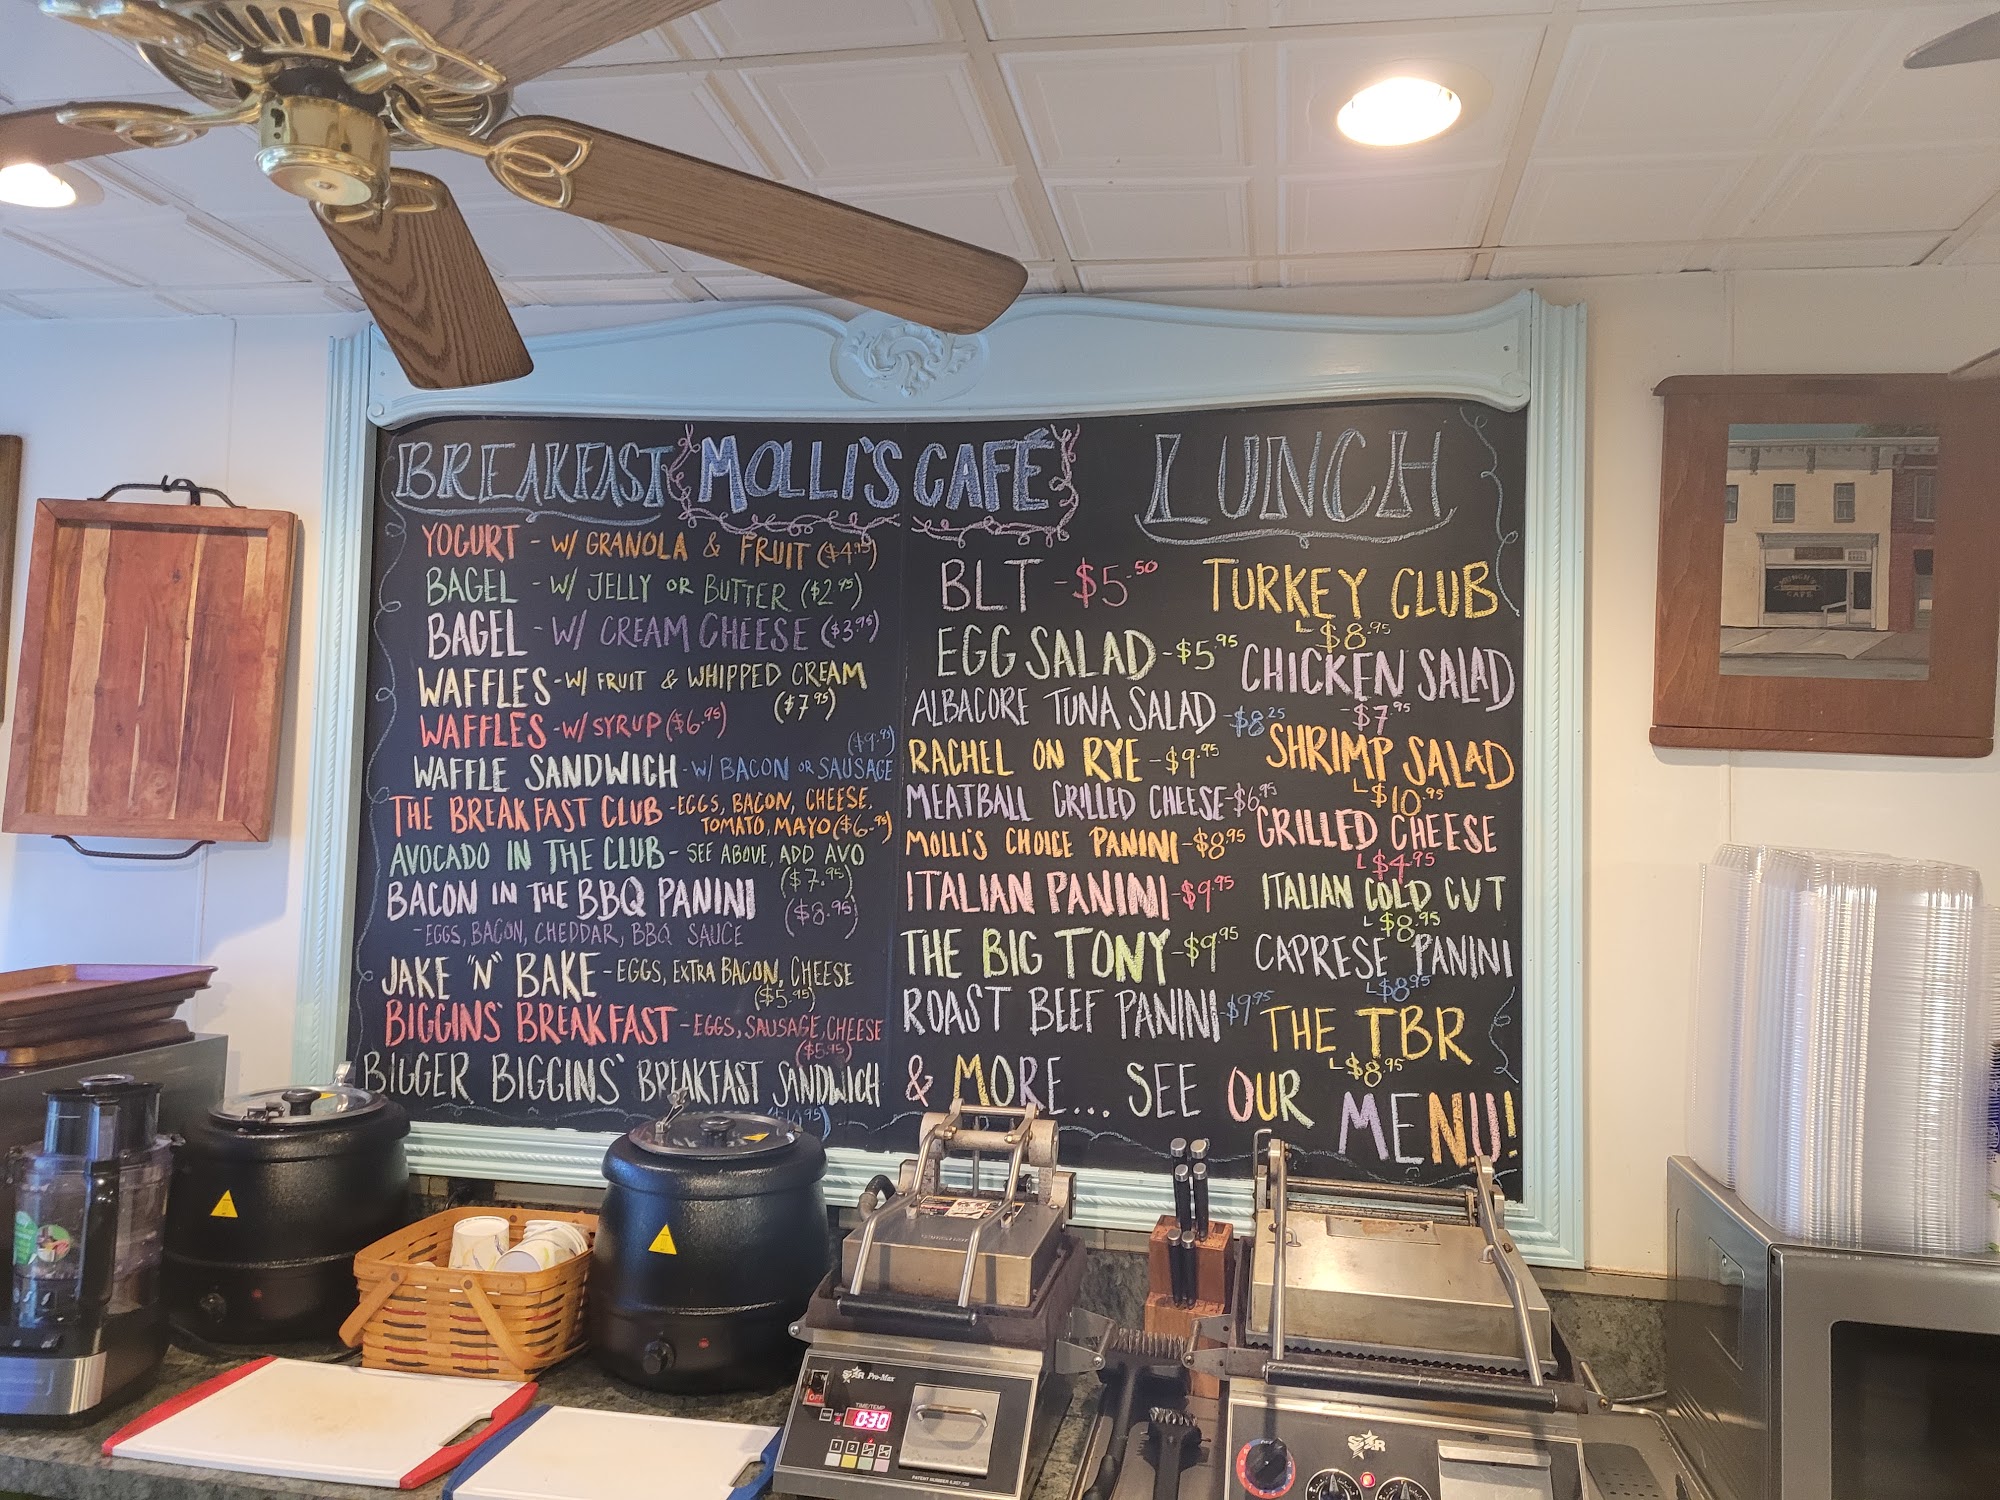 BREAKFAST
MOLLI'S CAFÉ
LUNCH
YOGURT - W/ GRANOLA & FRUIT ($4.95)
BAGEL - W/ JELLY OR BUTTER ($2.95)
BAGEL - W/ CREAM CHEESE ($3.95)
WAFFLES - W/ FRUIT & WHIPPED CREAM
($7.95)
WAFFLES - W/ SYRUP ($6.95)
($9.95)
WAFFLE SANDWICH - W/ BACON OR SAUSAGE
THE BREAKFAST CLUB - EGGS, BACON, CHEESE,
TOMATO, MAYO ($6.95)
AVOCADO IN THE CLUB - SEE ABOVE, ADD AVO
($7.95)
BACON IN THE BBQ PANINI ($8.95)
- EGGS, BACON, CHEDDAR, BBQ SAUCE
JAKE "N" BAKE - EGGS, EXTRA BACON, CHEESE
($5.95)
BIGGINS' BREAKFAST - EGGS, SAUSAGE, CHEESE
($5.95)
BIGGER BIGGINS' BREAKFAST SANDWICH
BLT - $5.50
EGG SALAD - $5.95
ALBACORE TUNA SALAD - $8.25
RACHEL ON RYE - $9.95
MEATBALL GRILLED CHEESE - $6.95
MOLLI'S CHOICE PANINI - $8.95
ITALIAN PANINI - $9.95
THE BIG TONY - $9.95
ROAST BEEF PANINI - $9.95
TURKEY CLUB
$8.95
CHICKEN SALAD
- $7.95
SHRIMP SALAD
$10.95
GRILLED CHEESE
$4.95
ITALIAN COLD CUT
$8.95
CAPRESE PANINI
$8.95
THE TBR
$8.95
& MORE... SEE OUR MENU!
CAFE
STAR Pro-Max
OFF
TIME/TEMP
0:30
1 2
STAR